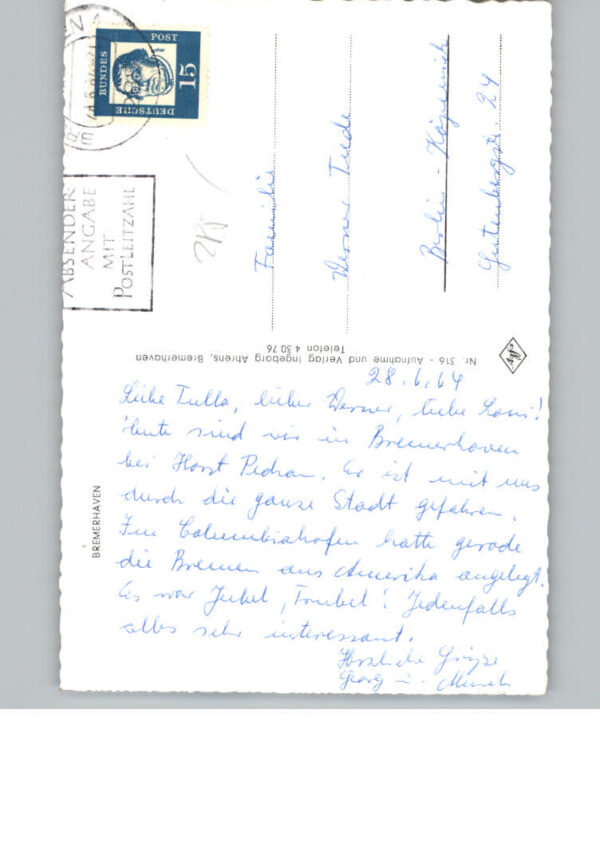 28.6.64
Liebe Tulla, lieber Werner, liebe Loni!
Heute sind wir in Bremerhaven
bei Horst Pedran. Er ist mit uns
durch die ganze Stadt gefahren.
Im Columbiahafen hatte gerade
die Bremen aus Amerika angelegt.
Es war Jubel, Trubel! Jedenfalls
alles sehr interessant.
Herzliche Grüsse
Georg u.
BREMERHAVEN
Nr. 316 - Aufnahme und Verlag Ingeborg Ahrens, Bremerhaven
Telefon 4 30 76
ABSENDER
ANGABE
MIT
POSTLEITZAHL
DEUTSCHE
BUNDES
POST
15
Familie
Werner Tude
Berlin - Köpenick
Gutenbergstr. 24